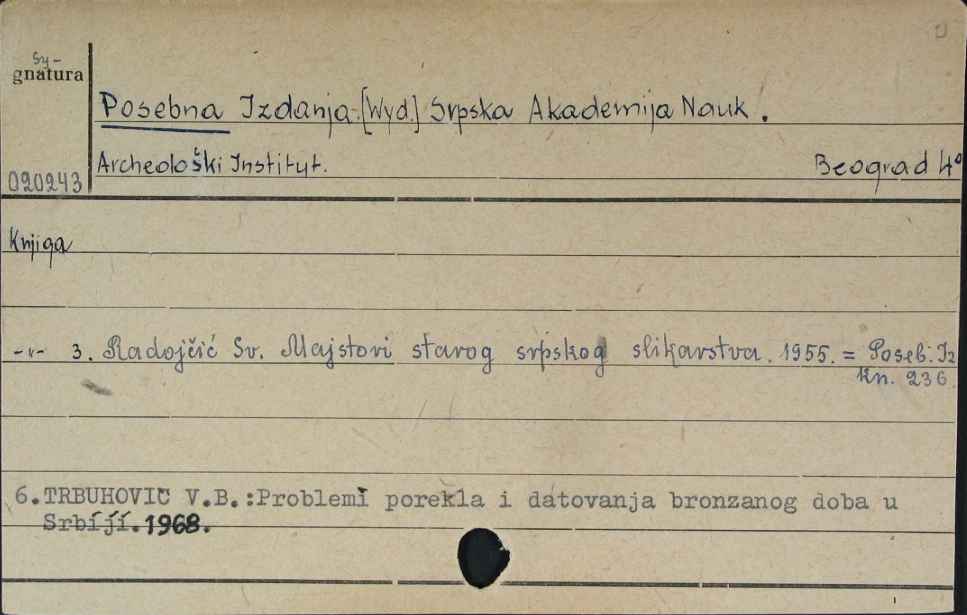 Sy-
gnatura
Posebna Izdanja. [Wyd.] Srpska Akademija Nauk.
Archeološki Institut. Beograd 4°
020243
Knjiga
-„- 3. Radojčić Sv. Majstori starog srpskog slikarstva. 1955. = Poseb. Iz
kn. 236
6. TRBUHOVIC V.B.:Problemi porekla i datovanja bronzanog doba u
Srbiji. 1968.